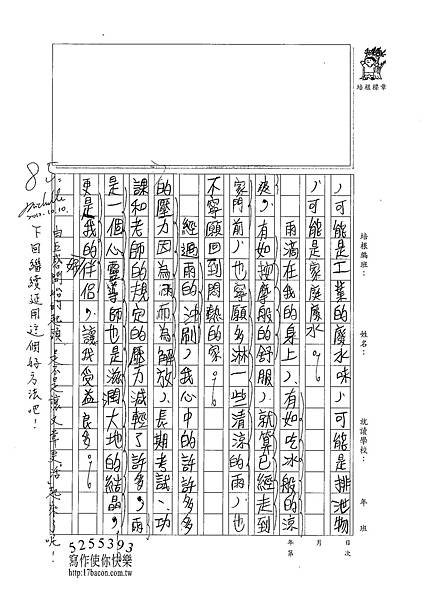 培根標章
培根編班：
姓名：
就讀學校：
年 班
年 月 日
第 次
，可能是工業的廢水味，可能是排泄物
，可能是家庭廢水。
雨滴在我的身上，有如吃冰般的涼
爽，有如按摩般的舒服，就算已經走到
家門前，也寧願多淋一些清涼的雨，也
不寧願回到悶熱的家。
經過雨的沖刷，我心中的許許多多
的壓力因為雨而為解放，長期考試、功
課和老師的規定的壓力減輕了許多，雨
是一個心靈導師也是滋潤大地的結晶，
更是我的好伴侶，讓我受益良多。
85
下回繼續延用這個好方法吧！
5255393
寫作使你快樂
http://17bacon.com.tw